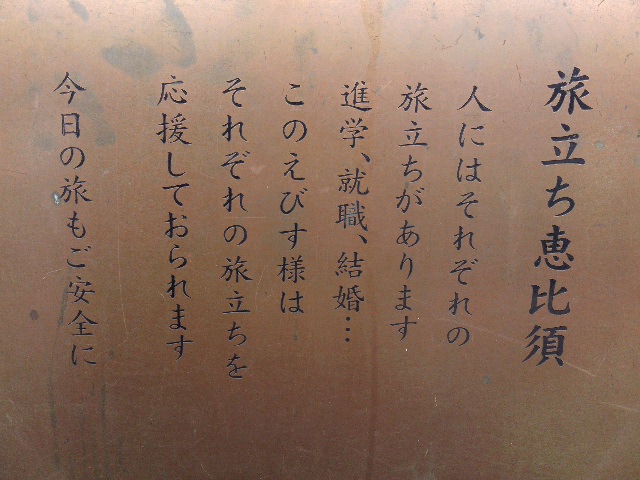 旅立ち恵比須
人にはそれぞれの
旅立ちがあります
進学、就職、結婚…
このえびす様は
それぞれの旅立ちを
応援しておられます
今日の旅もご安全に